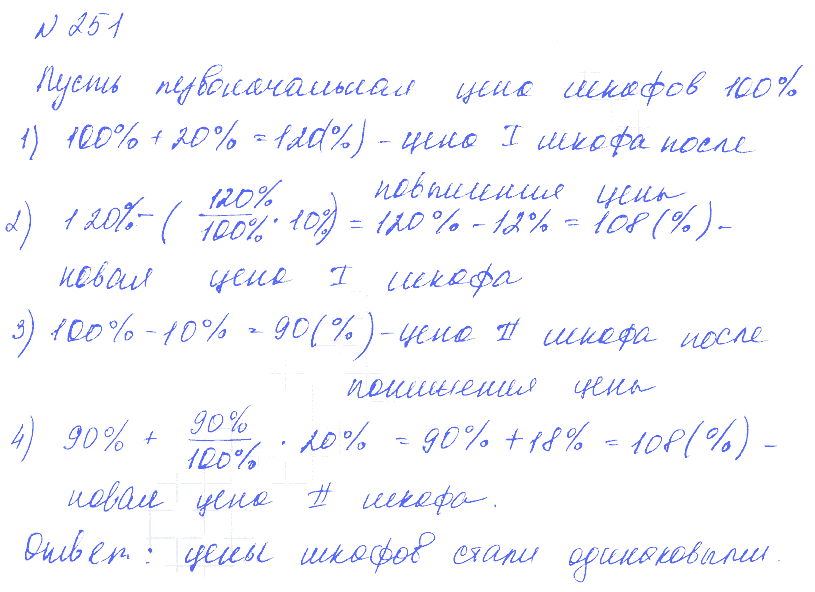 N 251
Пусть первоначальная цена шкафов 100%
1) 100% + 20% = 120(%) – цена I шкафа после
повышения цены
2) 120% – ( 120%/100% · 10%) = 120% – 12% = 108 (%) –
новая цена I шкафа
3) 100% – 10% = 90(%) – цена II шкафа после
понижения цены
4) 90% + 90%/100% · 20% = 90% + 18% = 108(%) –
новая цена II шкафа.
Ответ: цены шкафов стали одинаковыми.